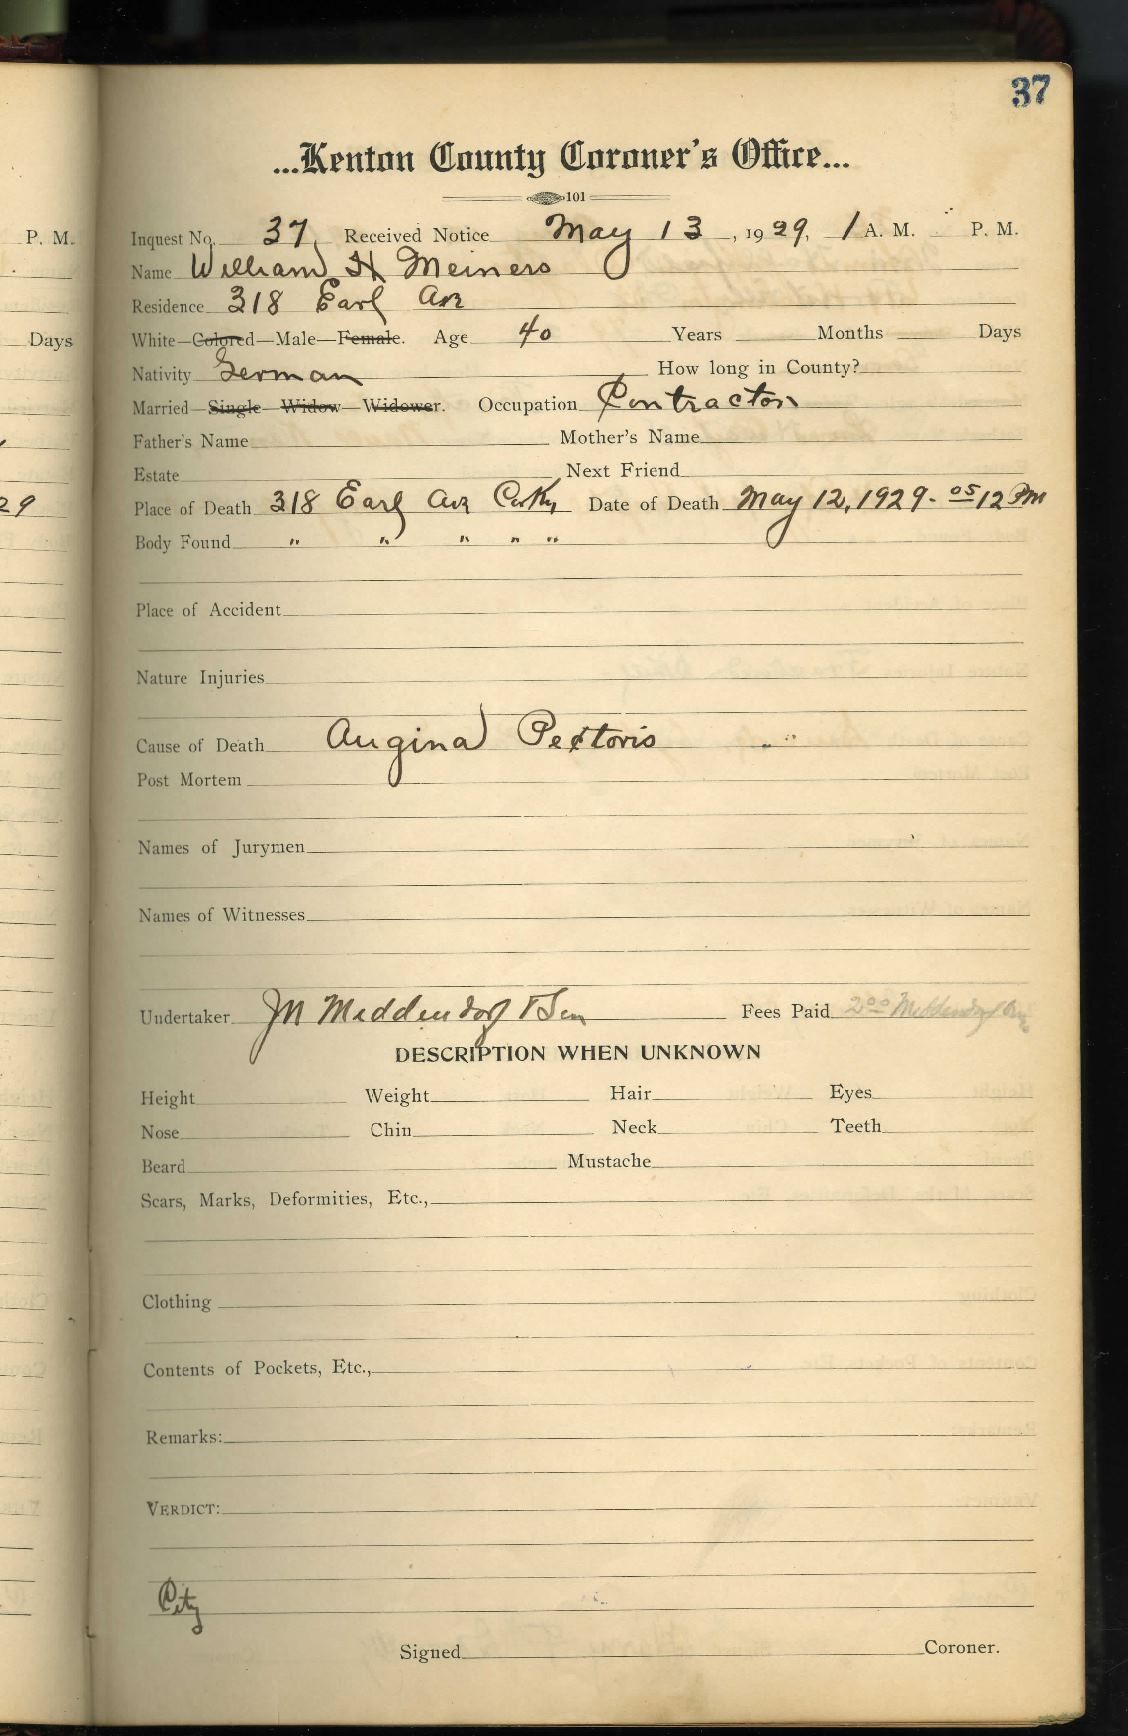 37
...Kenton County Coroner's Office...
101
P. M.
Inquest No. 37. Received Notice May 13, 1929, 1 A. M. P. M.
Name William H Meiners
Residence 318 Earl Ave
Days
White—Colored—Male—Female. Age 40 Years Months Days
Nativity German How long in County?
Married—Single—Widow—Widower. Occupation Contractor
Father's Name Mother's Name
Estate Next Friend
29
Place of Death 318 Earl Ave Cov Ky Date of Death May 12, 1929. 05 12 PM
Body Found " " " " "
Place of Accident
Nature Injuries
Cause of Death Augina Pectoris
Post Mortem
Names of Jurymen
Names of Witnesses
Undertaker JM Middendorf & Son Fees Paid 2 00 Middendorf
DESCRIPTION WHEN UNKNOWN
Height Weight Hair Eyes
Nose Chin Neck Teeth
Beard Mustache
Scars, Marks, Deformities, Etc.,
Clothing
Contents of Pockets, Etc.,
Remarks:
VERDICT:
City
Signed Coroner.